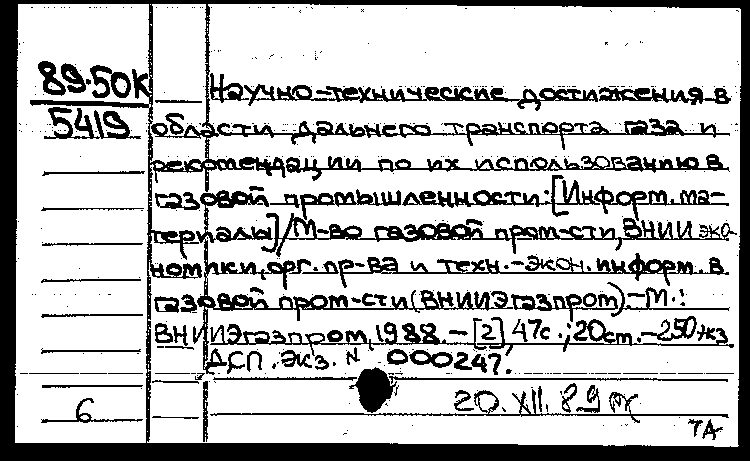 89-50К
5419
Научно-технические достижения в
области дальнего транспорта газа и
рекомендации по их использованию в
газовой промышленности: [Информ. ма-
териалы] / М-во газовой пром-сти, ВНИИ эко-
номики, орг. пр-ва и техн.-экон. информ. в
газовой пром-сти (ВНИИЭгазпром). - М.:
ВНИИЭгазпром, 1988. - [2], 47с.; 20см. - 250 экз.
ДСП. Экз. N 000247.
6
20. XII. 89
7А